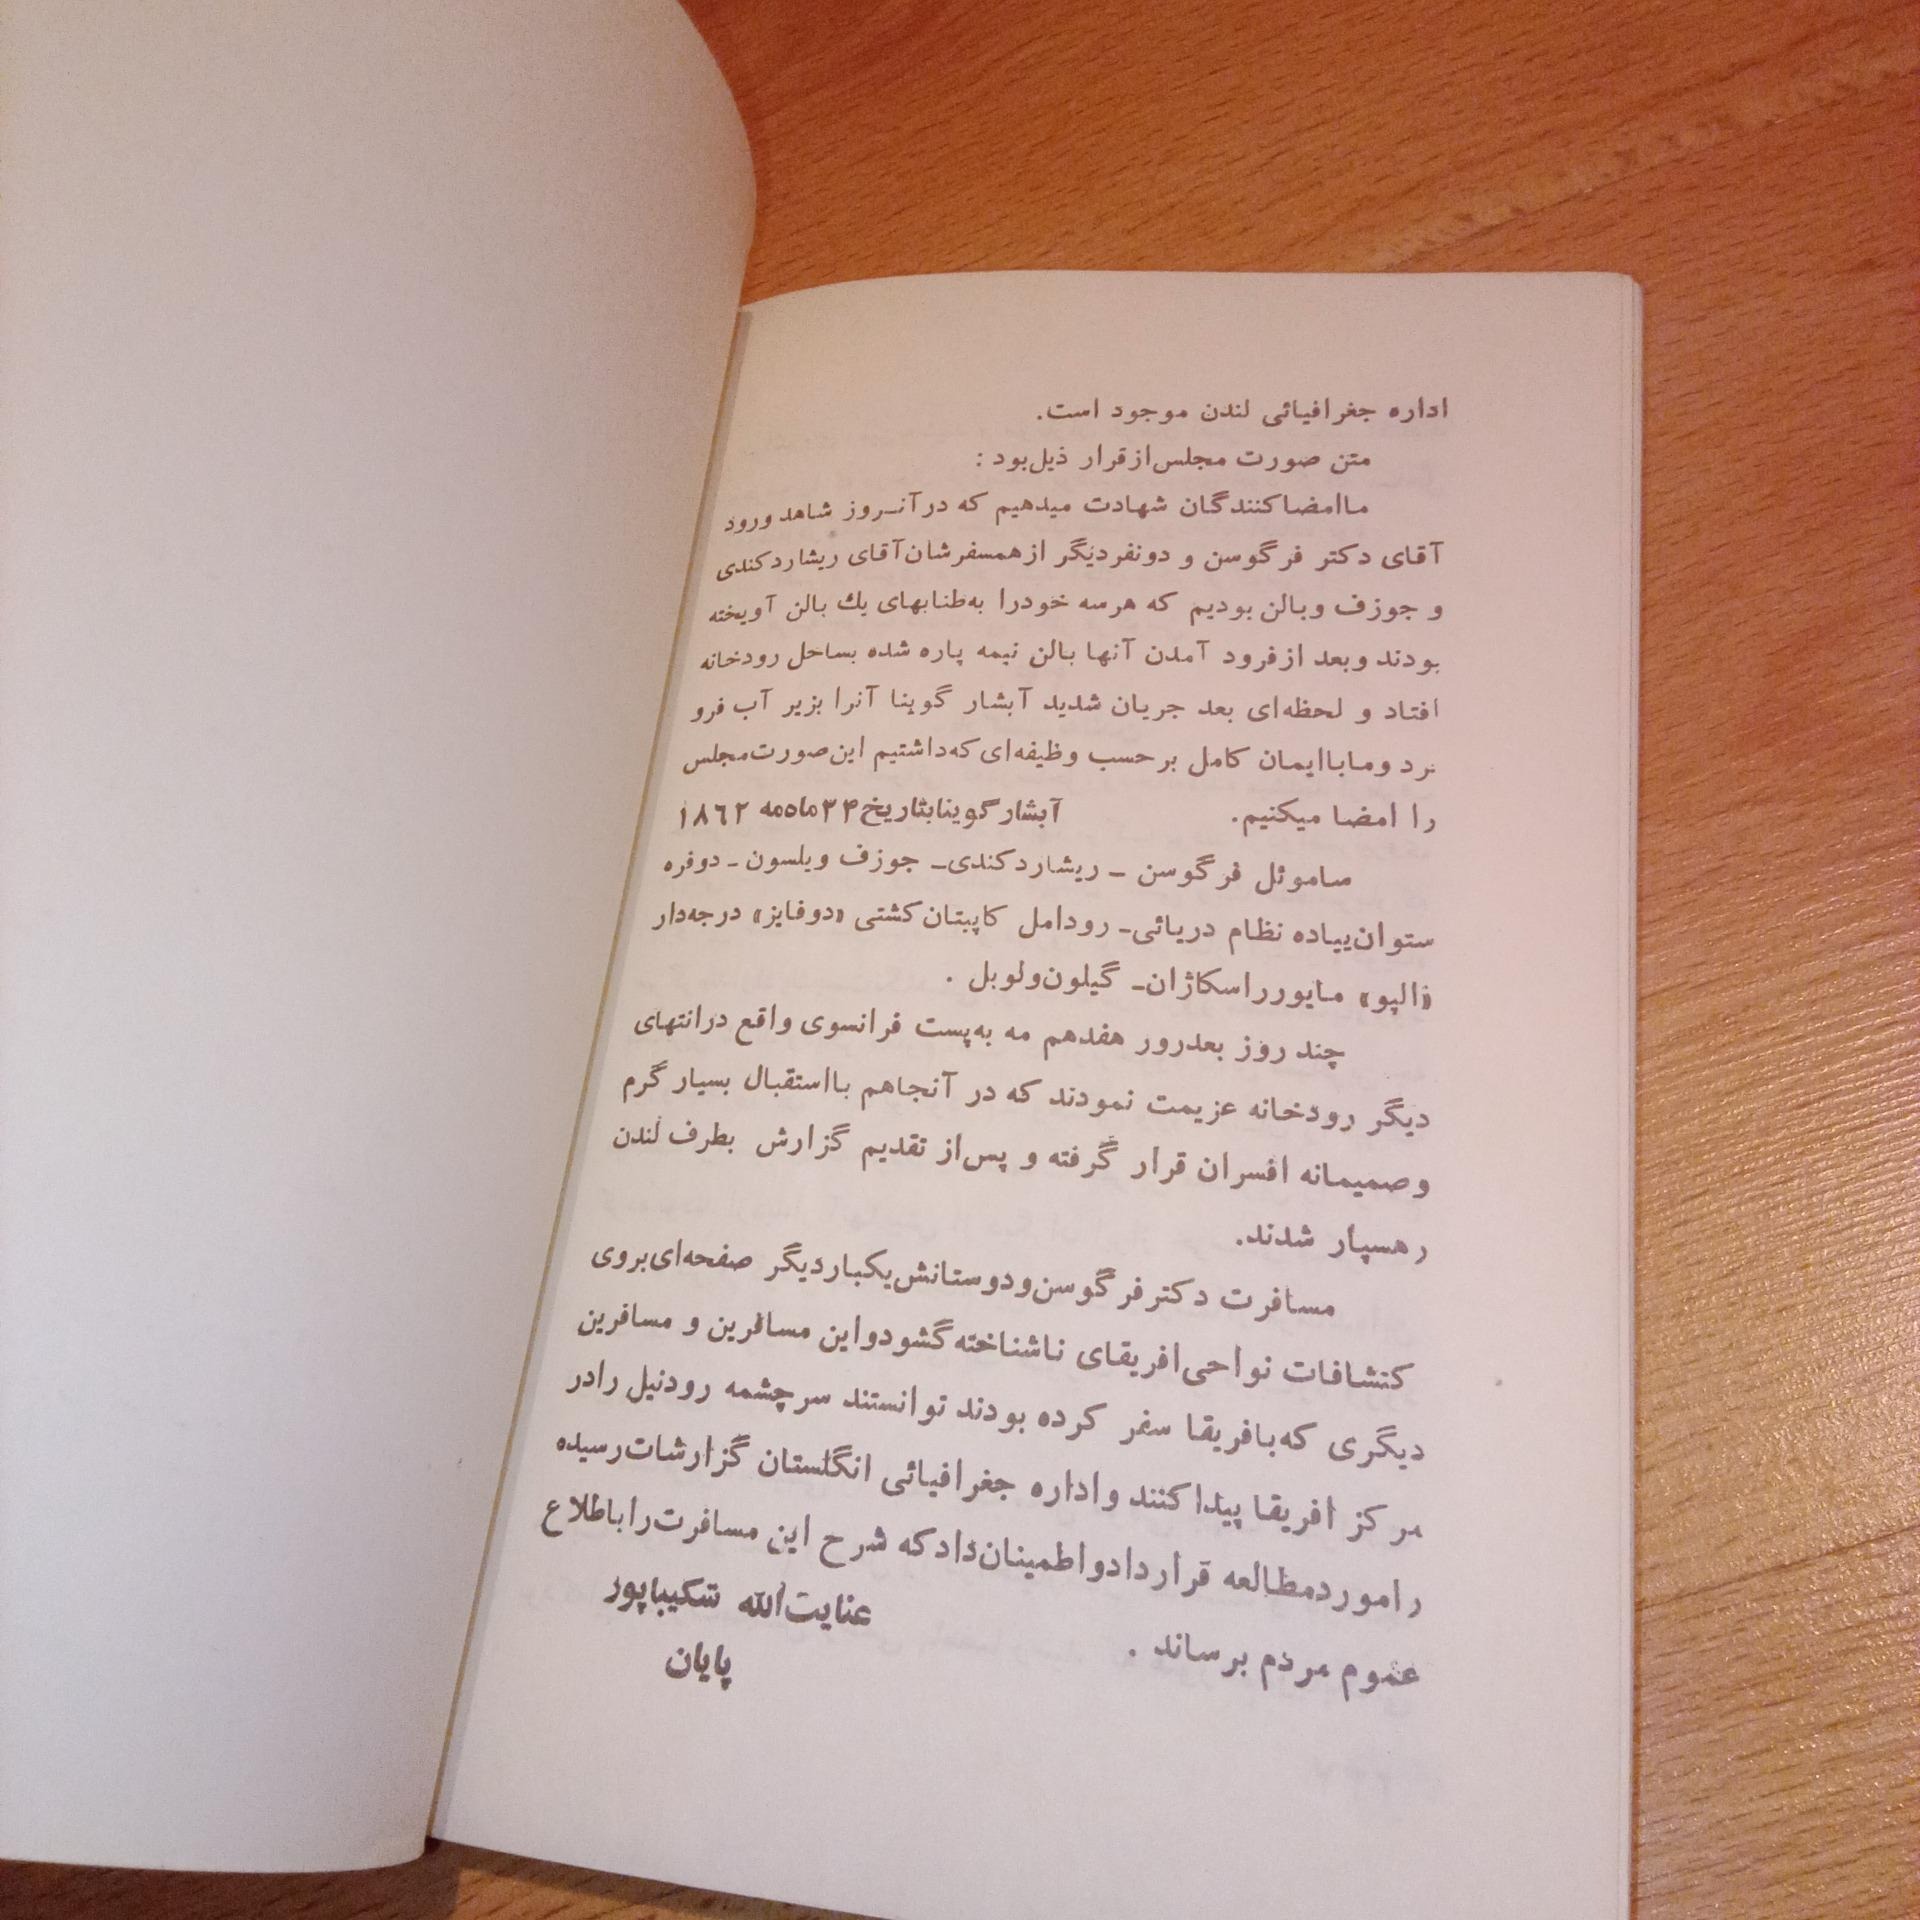 اداره جغرافیائی لندن موجود است.
متن صورت مجلس از قرار ذیل بود :
ما امضا کنندگان شهادت میدهیم که در آنـروز شاهد ورود
آقای دکتر فرگوسن و دونفر دیگر از همسفرشان آقای ریشارد کندی
و جوزف و بالن بودیم که هرسه خودرا به طنابهای یك بالن آویخته
بودند و بعد از فرود آمدن آنها بالن نیمه پاره شده بساحل رودخانه
افتاد و لحظه‌ای بعد جریان شدید آبشار گوینا آنرا بزیر آب فرو
برد و ما با ایمان کامل بر حسب وظیفه‌ای که داشتیم این صورت مجلس
را امضا میکنیم. آبشار گوینا بتاریخ ۲۴ ماه مه ۱۸۶۲
ساموئل فرگوسن ـ ریشارد کندی ـ جوزف ویلسون ـ دوفره
ستوان پیاده نظام دریائی ـ رودامل کاپیتان کشتی «دوفایز» درجه‌دار
«الپو» مایور راسکاژان ـ گیلون ولوبل .
چند روز بعد رور هفدهم مه به پست فرانسوی واقع در انتهای
دیگر رودخانه عزیمت نمودند که در آنجا هم با استقبال بسیار گرم
و صمیمانه افسران قرار گرفته و پس از تقدیم گزارش بطرف لندن
رهسپار شدند.
مسافرت دکتر فرگوسن و دوستانش یکبار دیگر صفحه‌ای بروی
کتشافات نواحی افریقای ناشناخته گشود و این مسافرین و مسافرین
دیگری که بافریقا سفر کرده بودند توانستند سرچشمه رود نیل را در
مرکز افریقا پیدا کنند و اداره جغرافیائی انگلستان گزارشات رسیده
را مورد مطالعه قرار داد و اطمینان داد که شرح این مسافرت را باطلاع
عموم مردم برساند .
عنایت‌الله شکیباپور
پایان